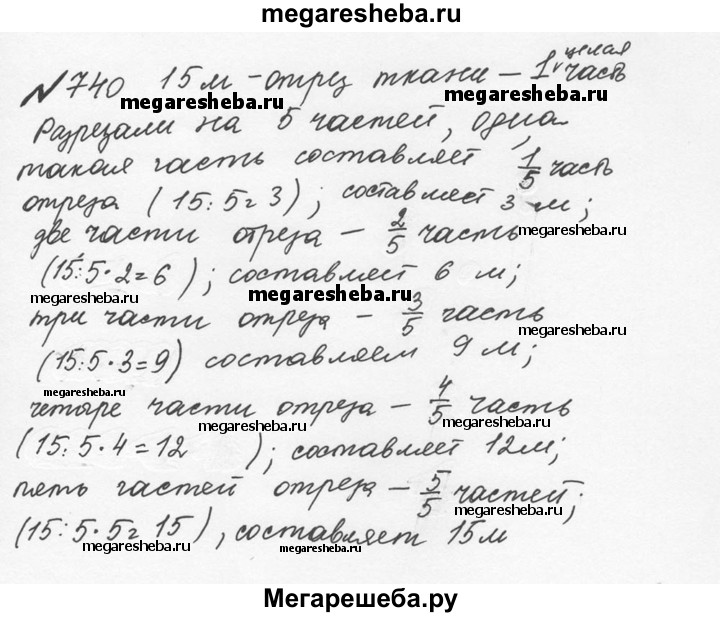 megaresheba.ru
№740 15 м - отрез ткани - 1 целая часть
megaresheba.ru megaresheba.ru
Разрезали на 5 частей, одна
такая часть составляет 1/5 часть
отреза (15:5=3); составляет 3 м;
две части отреза - 2/5 часть
megaresheba.ru
(15:5·2=6); составляет 6 м;
megaresheba.ru megaresheba.ru
три части отреза - 3/5 часть
megaresheba.ru
(15:5·3=9) составляем 9 м;
megaresheba.ru
четыре части отреза - 4/5 часть
megaresheba.ru
(15:5·4=12 ); составляет 12м;
пять частей отреза - 5/5 частей;
megaresheba.ru
(15:5·5=15), составляет 15м
megaresheba.ru megaresheba.ru
Мегарешеба.ру